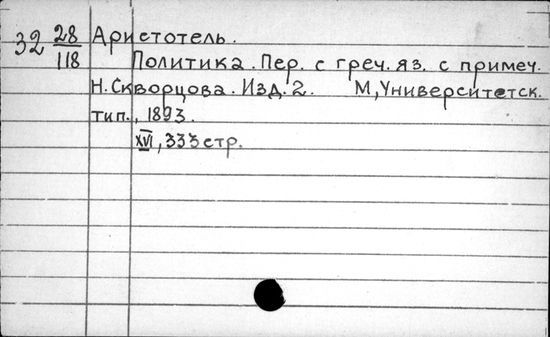 32 28/118 Аристотель.
Политика. Пер. с греч. яз. с примеч.
Н. Скворцова. Изд. 2. М, Университетск.
тип., 1893.
XVI, 333 стр.